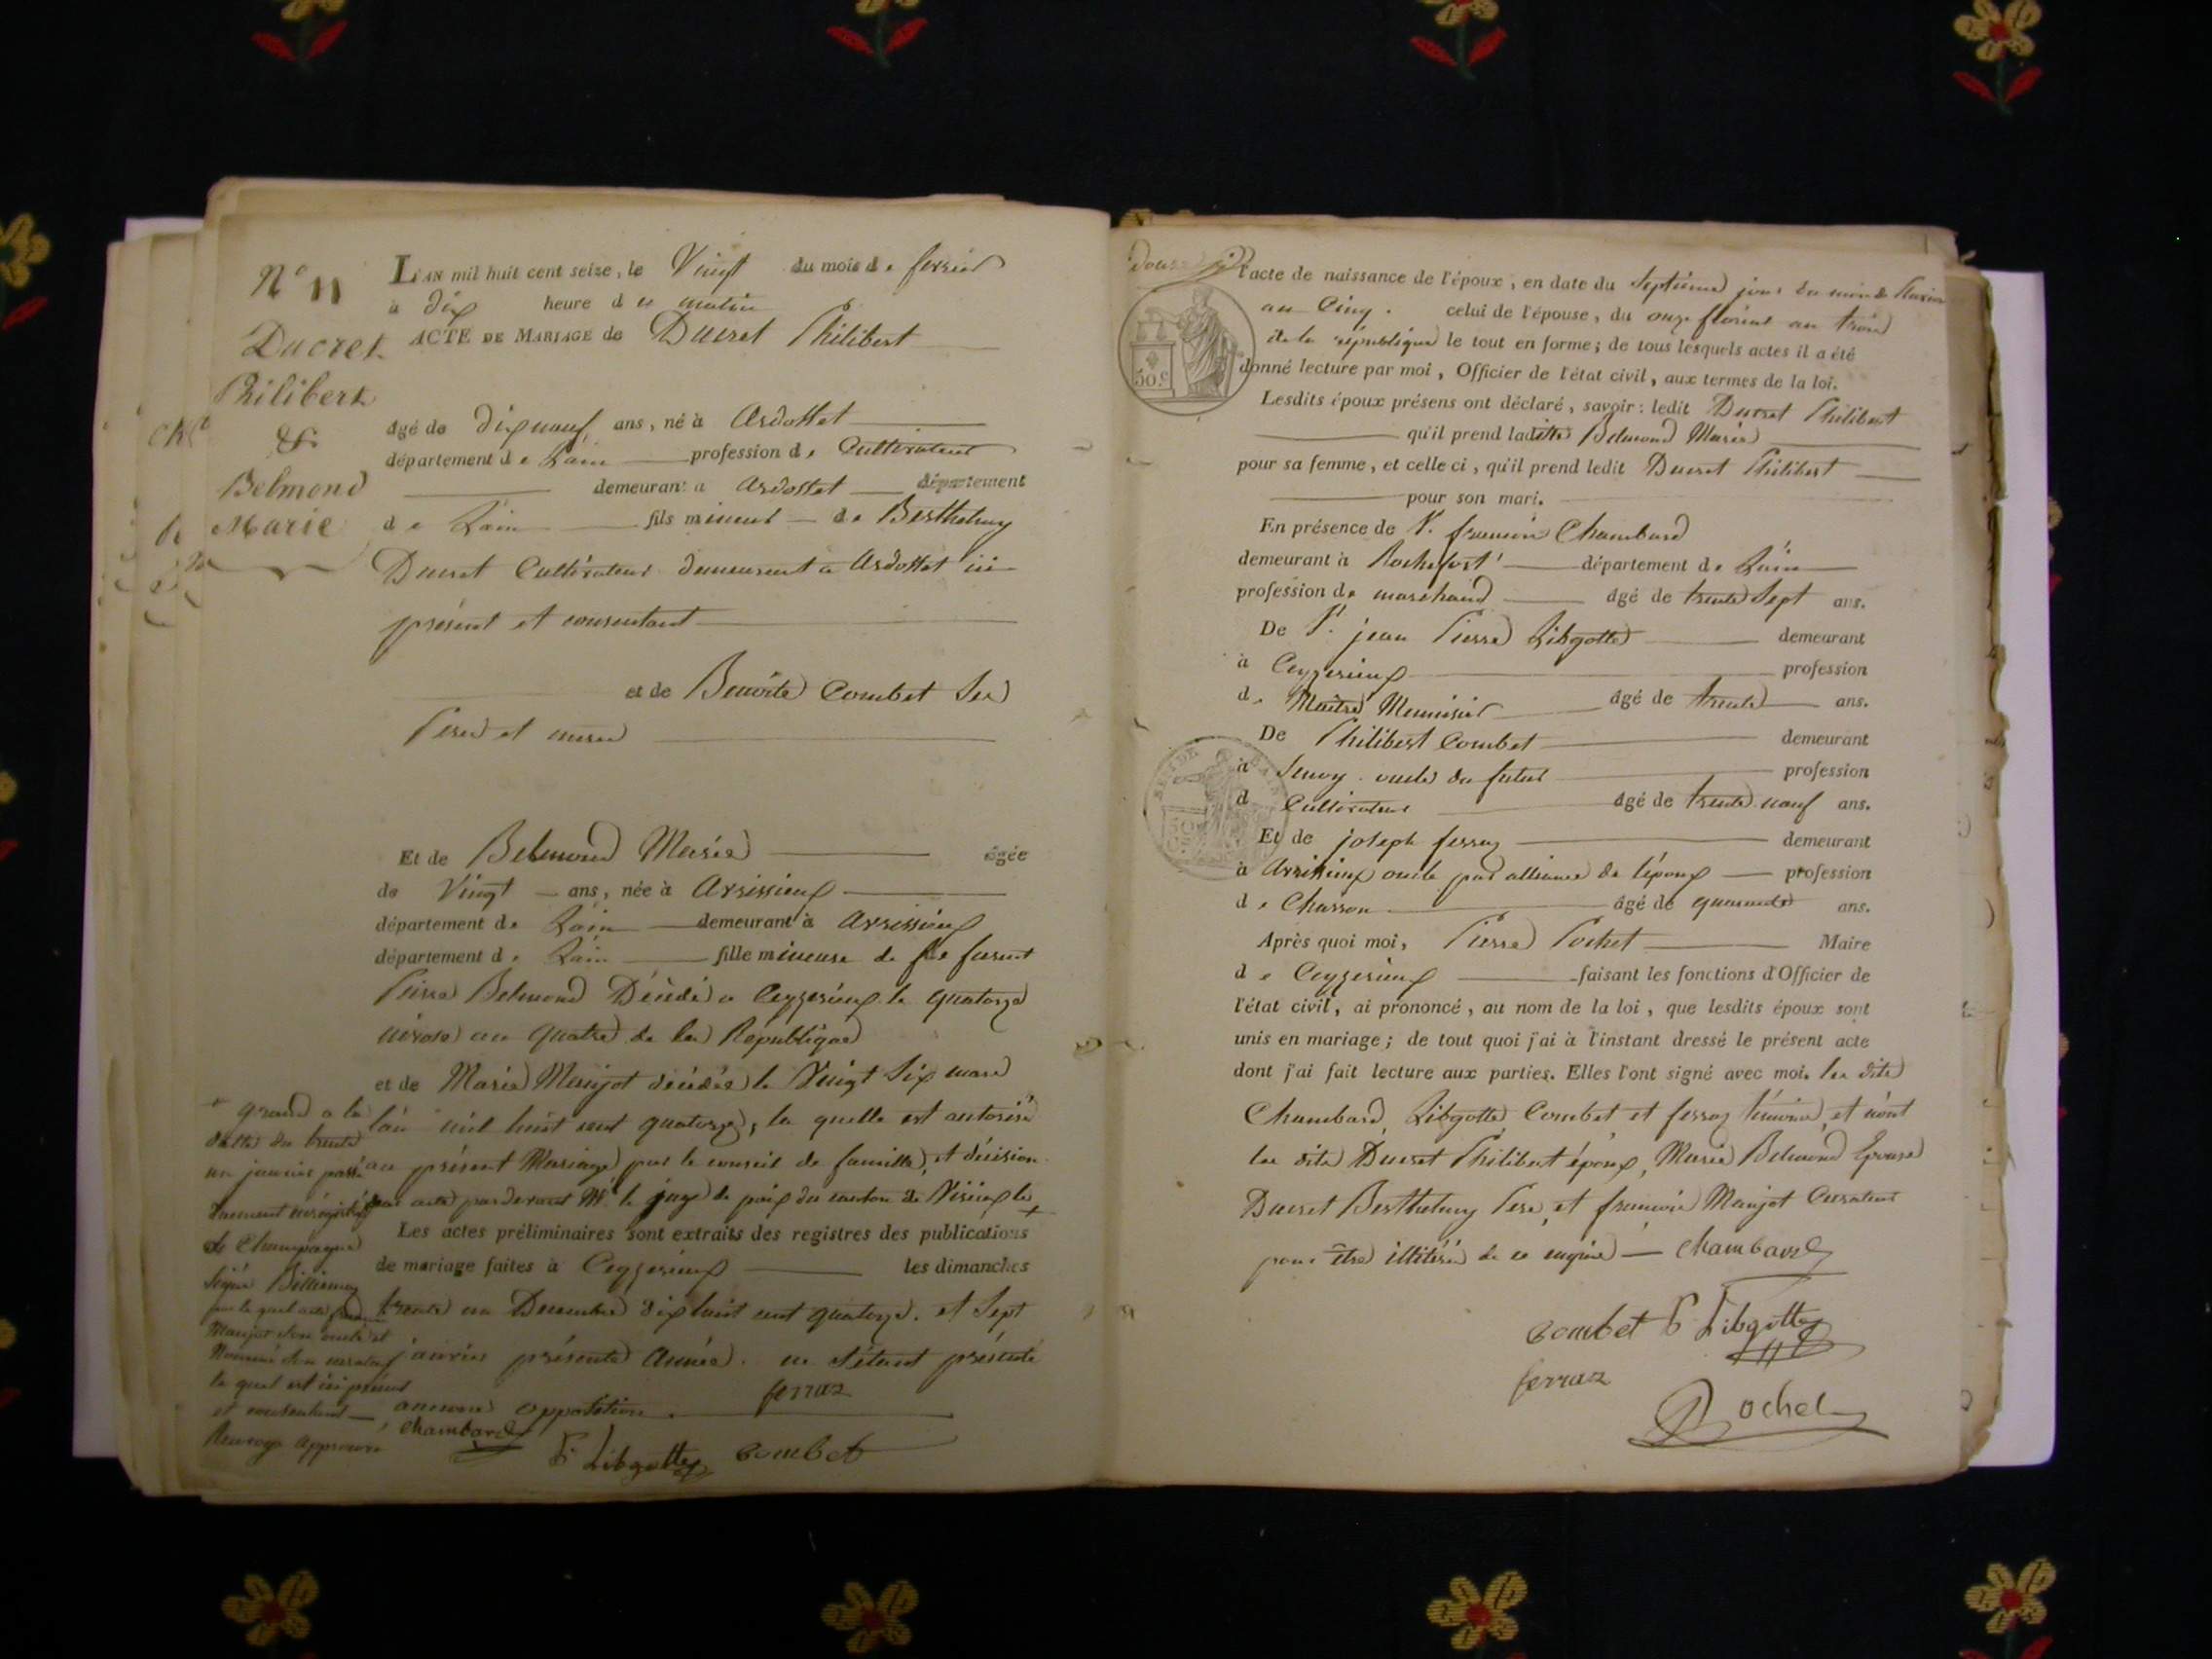 N° 11
Ducret
Philibert
&
Belmond
Marie
L'AN mil huit cent seize, le Vingt du mois de fevrier
à dix heure du matin
ACTE DE MARIAGE de Ducret Philibert
âgé de dix neuf ans, né à Ardosset
département de Lain profession de Cultivateur
demeurant a Ardosset département
de Lain fils mineur de Berthelmy
Ducret Cultivateur demeurant a Ardosset ici
présent et consentant
et de Benoite Combet Ses
Pere et mere
Et de Belmond Marie âgée
de Vingt ans, née à Avrissieux
département de Lain demeurant à Avrissieux
département de Lain fille mineure de feu
Pierre Belmond Décédé a Ceyzerieux le quatorze
nivose an quatre de la République
et de Marie Manjot décédée le Vingt Six mars
l'an mil huit cent quatorze, la quelle est autorisée
au présent Mariage par le conseil de famille, et décision
pardevant Mr. le juge de paix du canton de Virieux le
+ grand a la
datte du trente
un janvier passé
de Champagne
Signé
Manjot Son oncle et
Nommé Son curateur
le quel est ici présent
et consentant
Renvoye approuvé
Les actes préliminaires sont extraits des registres des publications
de mariage faites à Ceyzerieux les dimanches
trente un Decembre dix huit cent quatorze. et Sept
janvier présente Année. ne s'étant présenté
aucune opposition.
ferraz
Chambard
P. Libgotte combet
douze
l'acte de naissance de l'époux, en date du Septieme jour du mois de
an Cinq. celui de l'épouse, du onze floréal an trois
de la république le tout en forme; de tous lesquels actes il a été
donné lecture par moi, Officier de l'état civil, aux termes de la loi.
Lesdits époux présens ont déclaré, savoir: ledit Ducret Philibert
qu'il prend ladite Belmond Marie
pour sa femme, et celle ci, qu'il prend ledit Ducret Philibert
pour son mari.
En présence de Sr. francois Chambard
demeurant à Rochefort département de Lain
profession de maréchand âgé de trente Sept ans.
De Sr. jean Pierre Libgotte demeurant
à Ceyzerieux profession
de Maitre Menuisier âgé de trente ans.
De Philibert Combet demeurant
à oncle du futur profession
d Cultivateur âgé de trente neuf ans.
Et de joseph ferraz demeurant
à Avrissieux oncle par alliance de l'époux profession
de Charron âgé de quarante ans.
Après quoi moi, Pierre Pochet Maire
de Ceyzerieux faisant les fonctions d'Officier de
l'état civil, ai prononcé, au nom de la loi, que lesdits époux sont
unis en mariage; de tout quoi j'ai à l'instant dressé le présent acte
dont j'ai fait lecture aux parties. Elles l'ont signé avec moi. les dits
Chambard, Libgotte, Combet et ferraz témoins, et n'ont
les dits Ducret Philibert époux, Marie Belmond Epouse
Ducret Berthelmy Pere, et francois Manjot Curateur
pour être illitéré de ce enquis — Chambard
combet P. Libgotte
ferraz
Pochet
50 c